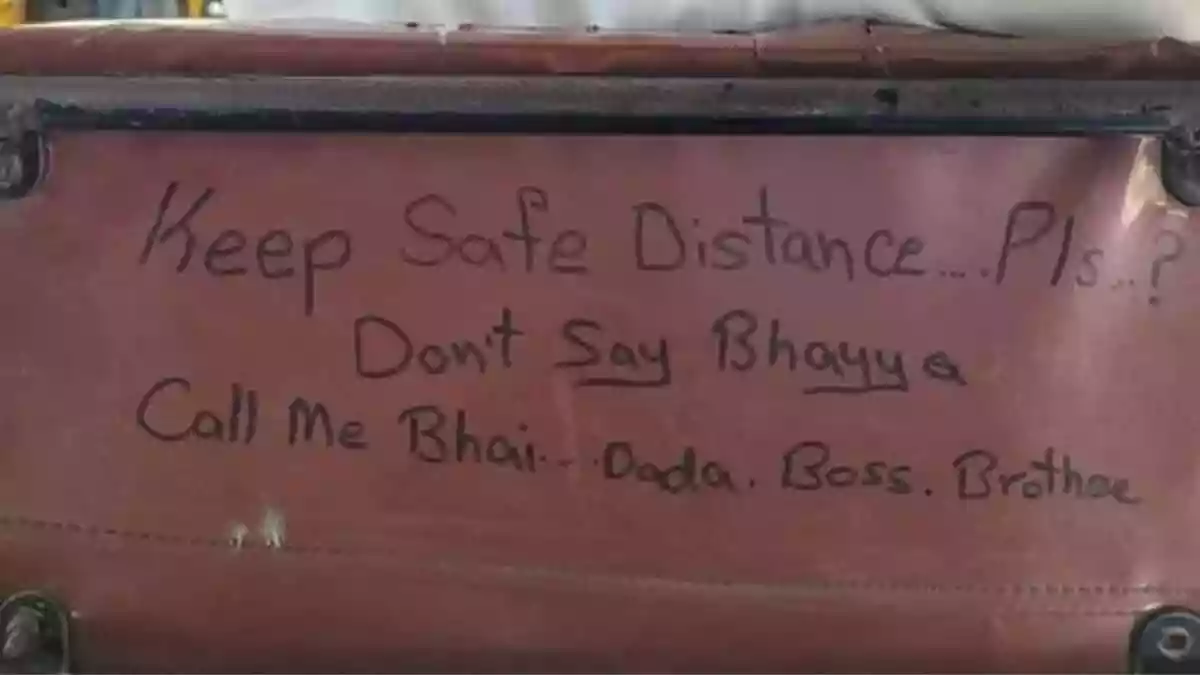 Keep Safe Distance....Pls..?
Don't Say Bhayya
Call Me Bhai....Dada. Boss. Brothee